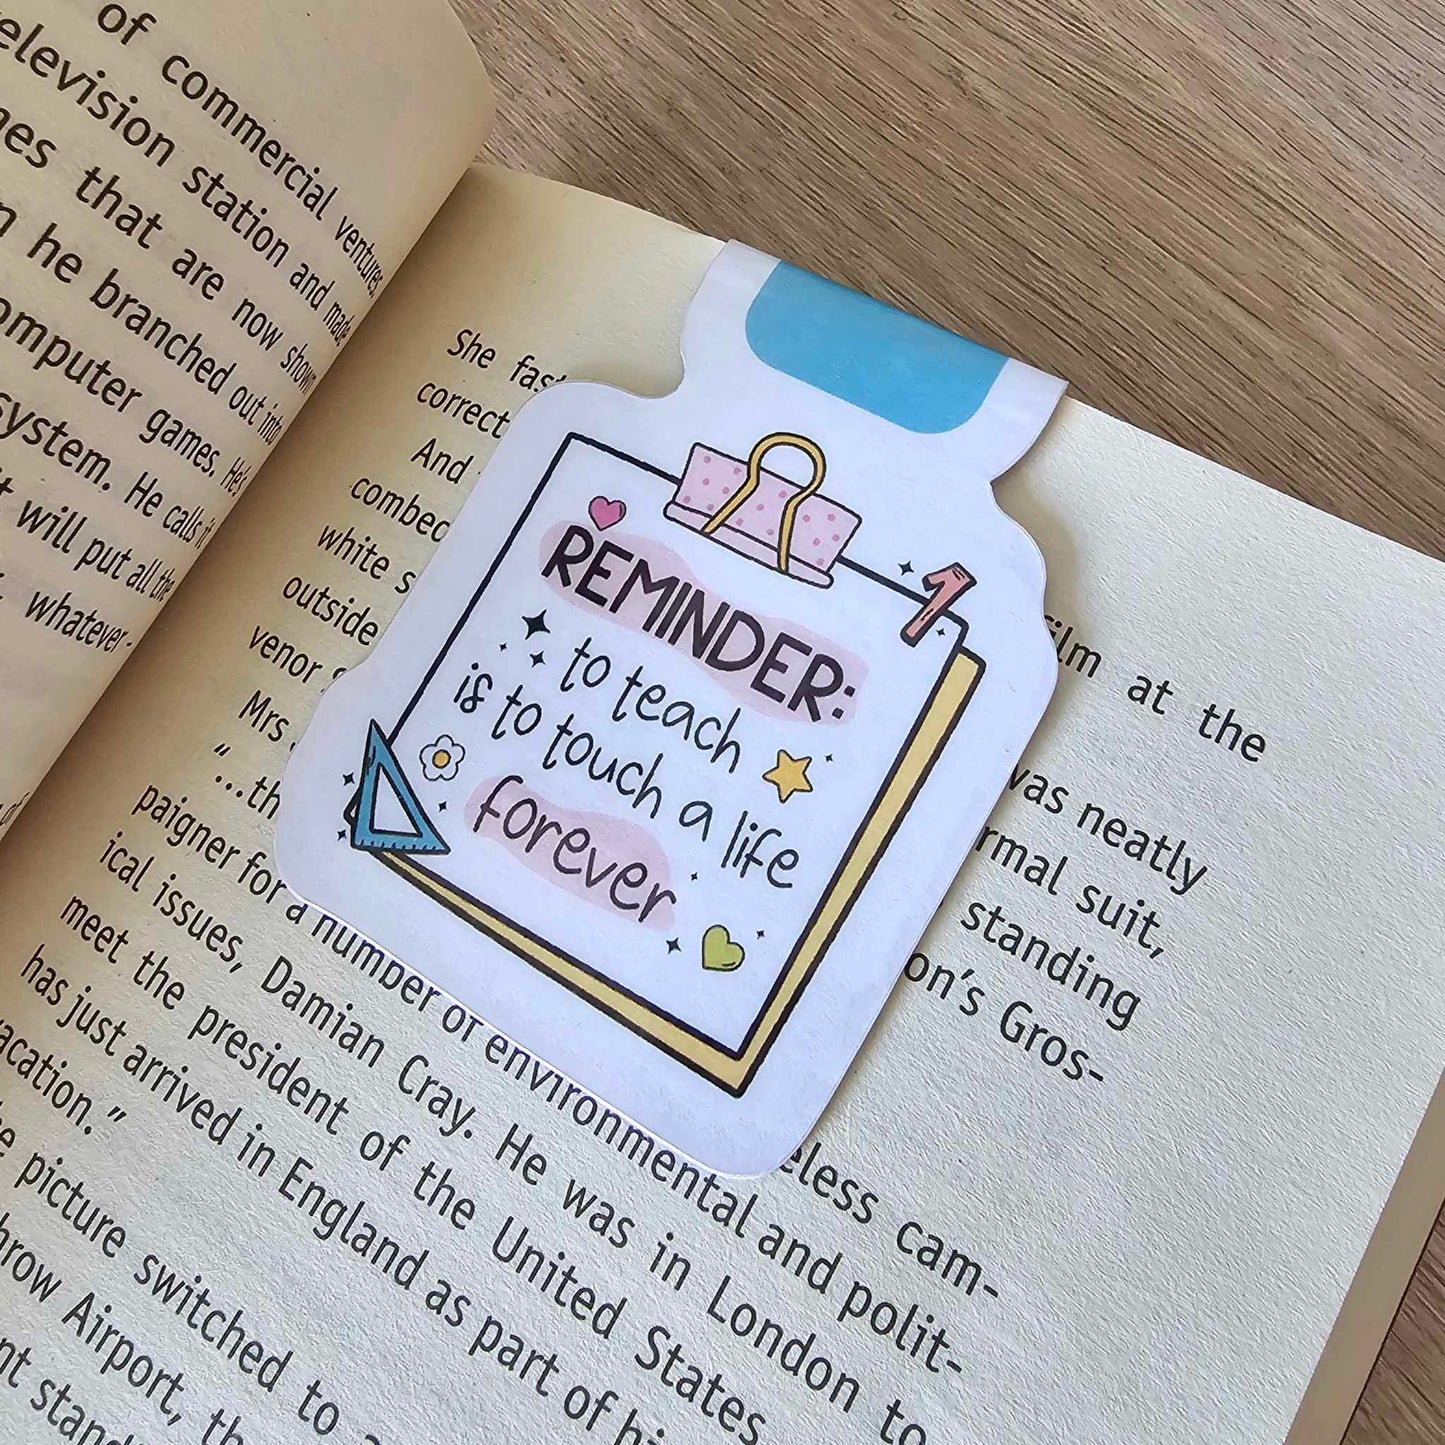 of commercial ventures,
elevision station and made
that are now shown
he branched out into
omputer games. He's
system. He calls it
will put all the
whatever-
She
correct
And
combed
white
outside
venor
Mrs
"...th
paigner for a number of environmental and polit-
ical issues, Damian Cray. He was in London to
meet the president of the United States
has just arrived in England as part of
acation."
picture switched to
Airport,
film at the
was neatly
rmal suit,
standing
on's Gros-
eless cam-
REMINDER:
to teach
is to touch a life
forever
1